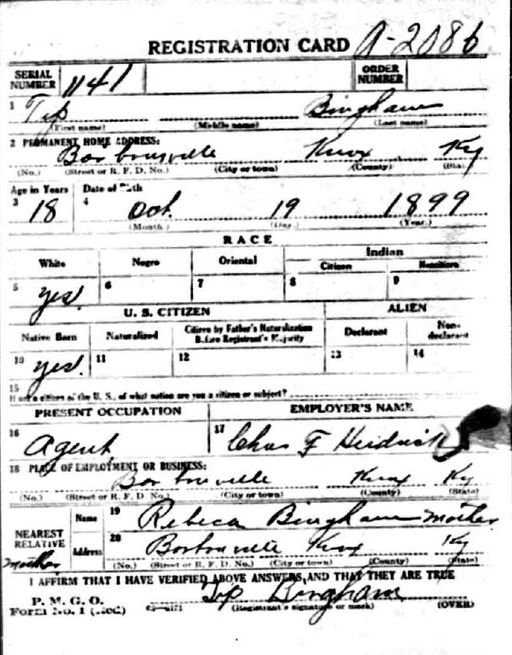 REGISTRATION CARD A-2086
SERIAL NUMBER 1141 ORDER NUMBER
1 Tip Bingham
(First name) (Middle name) (Last name)
2 PERMANENT HOME ADDRESS:
Barbourville Knox Ky
(No.) (Street or R. F. D. No.) (City or town) (County) (State)
Age in Years Date of Birth
3 18 4 Oct. 19 1899
(Month.) (Day.) (Year.)
RACE
White Negro Oriental Indian
Citizen Noncitizen
5 yes. 6 7 8 9
U. S. CITIZEN ALIEN
Native Born Naturalized Citizen by Father's Naturalization Before Registrant's Majority Declarant Non-declarant
10 yes. 11 12 13 14
15 If not a citizen of the U. S., of what nation are you a citizen or subject?
PRESENT OCCUPATION EMPLOYER'S NAME
16 Agent 17 Chas F Heidrick
18 PLACE OF EMPLOYMENT OR BUSINESS:
Barbourville Knox Ky
(No.) (Street or R. F. D. No.) (City or town) (County) (State)
NEAREST RELATIVE Name 19 Rebeca Bingham mother
mother Address 20 Borbonville Knox Ky
(No.) (Street or R. F. D. No.) (City or town) (County) (State)
I AFFIRM THAT I HAVE VERIFIED ABOVE ANSWERS AND THAT THEY ARE TRUE
P. M. G. O.
Form No. 1 (Red) Tip Bingham
(Registrant's signature or mark) (OVER)